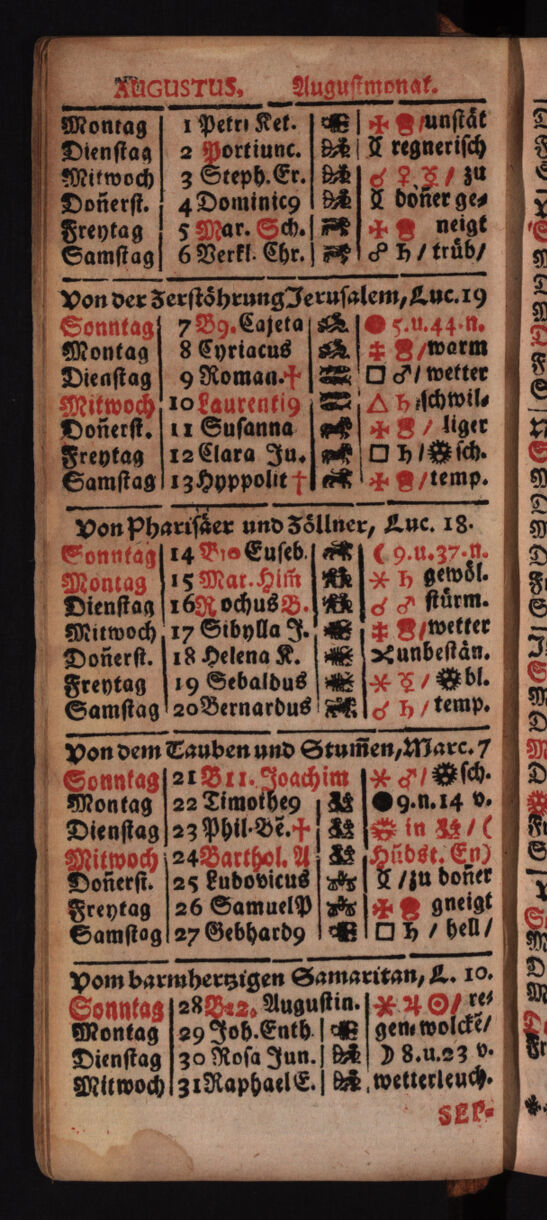 AUGUSTUS, Augustmonat.
Montag 1 Petri Ket. /unstät
Dienstag 2 Portiunc. ☿ regnerisch
Mitwoch 3 Steph. Er. ☌ ♀ ☿ / zu
Don̄erst. 4 Dominic9 ☿ don̄er ge⸗
Freytag 5 Mar. Sch. neigt
Samstag 6 Verkl. Chr. ☍ ♄ / trüb/
Von der Zerstöhrung Jerusalem, Luc. 19
Sonntag 7 B9. Cajeta ● 5. u. 44. n.
Montag 8 Cyriacus /warm
Dienstag 9 Roman. † □ ♂ / wetter
Mitwoch 10 Laurenti9 △ ♄ schwil⸗
Don̄erst. 11 Susanna / liger
Freytag 12 Clara Ju. □ ♄ / sch.
Samstag 13 Hyppolit † /temp.
Von Pharisäer und Zöllner, Luc. 18.
Sonntag 14 B10 Euseb. ☾ 9. u. 37. n.
Montag 15 Mar. Him̄ ⚹ ♄ gewöl.
Dienstag 16 Rochus B. ☌ ♂ stürm.
Mitwoch 17 Sibylla J. /wetter
Don̄erst. 18 Helena K. unbestän.
Freytag 19 Sebaldus ⚹ ☿ / bl.
Samstag 20 Bernardus ☌ ♄ / temp.
Von dem Tauben und Stum̄en, Marc. 7
Sonntag 21 B11. Joachim ⚹ ♂ / sch.
Montag 22 Timothe9 ● 9. n. 14 v.
Dienstag 23 Phil. Bē. † in ♍ / (
Mitwoch 24 Barthol. A Hūdst. En)
Don̄erst. 25 Ludovicus ☿ / zu don̄er
Freytag 26 Samuel P gneigt
Samstag 27 Gebhard9 □ ♄ / hell/
Vom barmhertzigen Samaritan, L. 10.
Sonntag 28 B12. Augustin. ⚹ ♃ ☉ / re⸗
Montag 29 Joh. Enth. gen wolckē/
Dienstag 30 Rosa Jun. ☽ 8. u. 23 v.
Mitwoch 31 Raphael E. wetterleuch.
SEP⸗